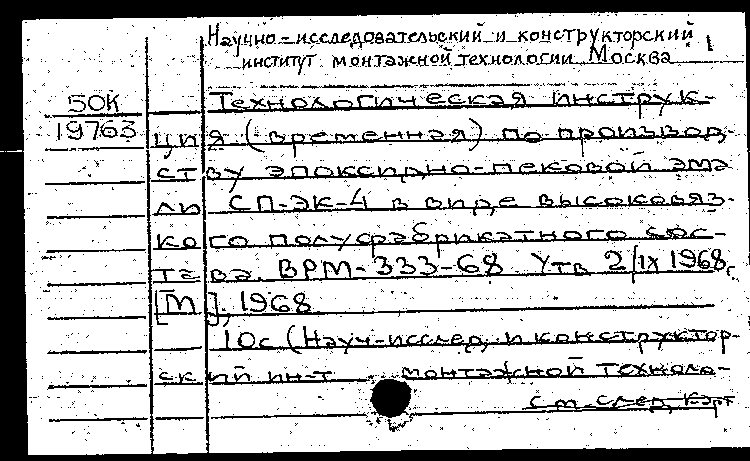 Научно-исследовательский и конструкторский
институт монтажной технологии Москва
50К
19763
Технологическая инструк-
ция (временная) по производ-
ству эпоксидно-пековой эма-
ли СП-ЭК-4 в виде высоковяз-
кого полусфабрикатного сос-
тава. ВРМ-333-68 Утв 2/IX 1968г
[М], 1968
10с (Науч-исслед. и конструктор-
ский ин-т монтажной техноло-
См. след. карт